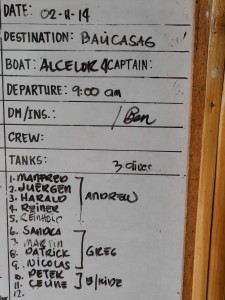 DATE: 02-11-14
DESTINATION: BALICASAG
BOAT: ALCELOR 4 CAPTAIN:
DEPARTURE: 9:00 am
DM/INS.: / Ben
CREW:
TANKS: 3 divers
1. MANFRED
2. JUERGEN
3. HARALD ANDREW
4. REINER
5. REINHOLD
6. SANDRA
7. MARTIN
8. PATRICK GREG
9. NICOLAS
10. PETER
11. CELINE B/MIDE
12.